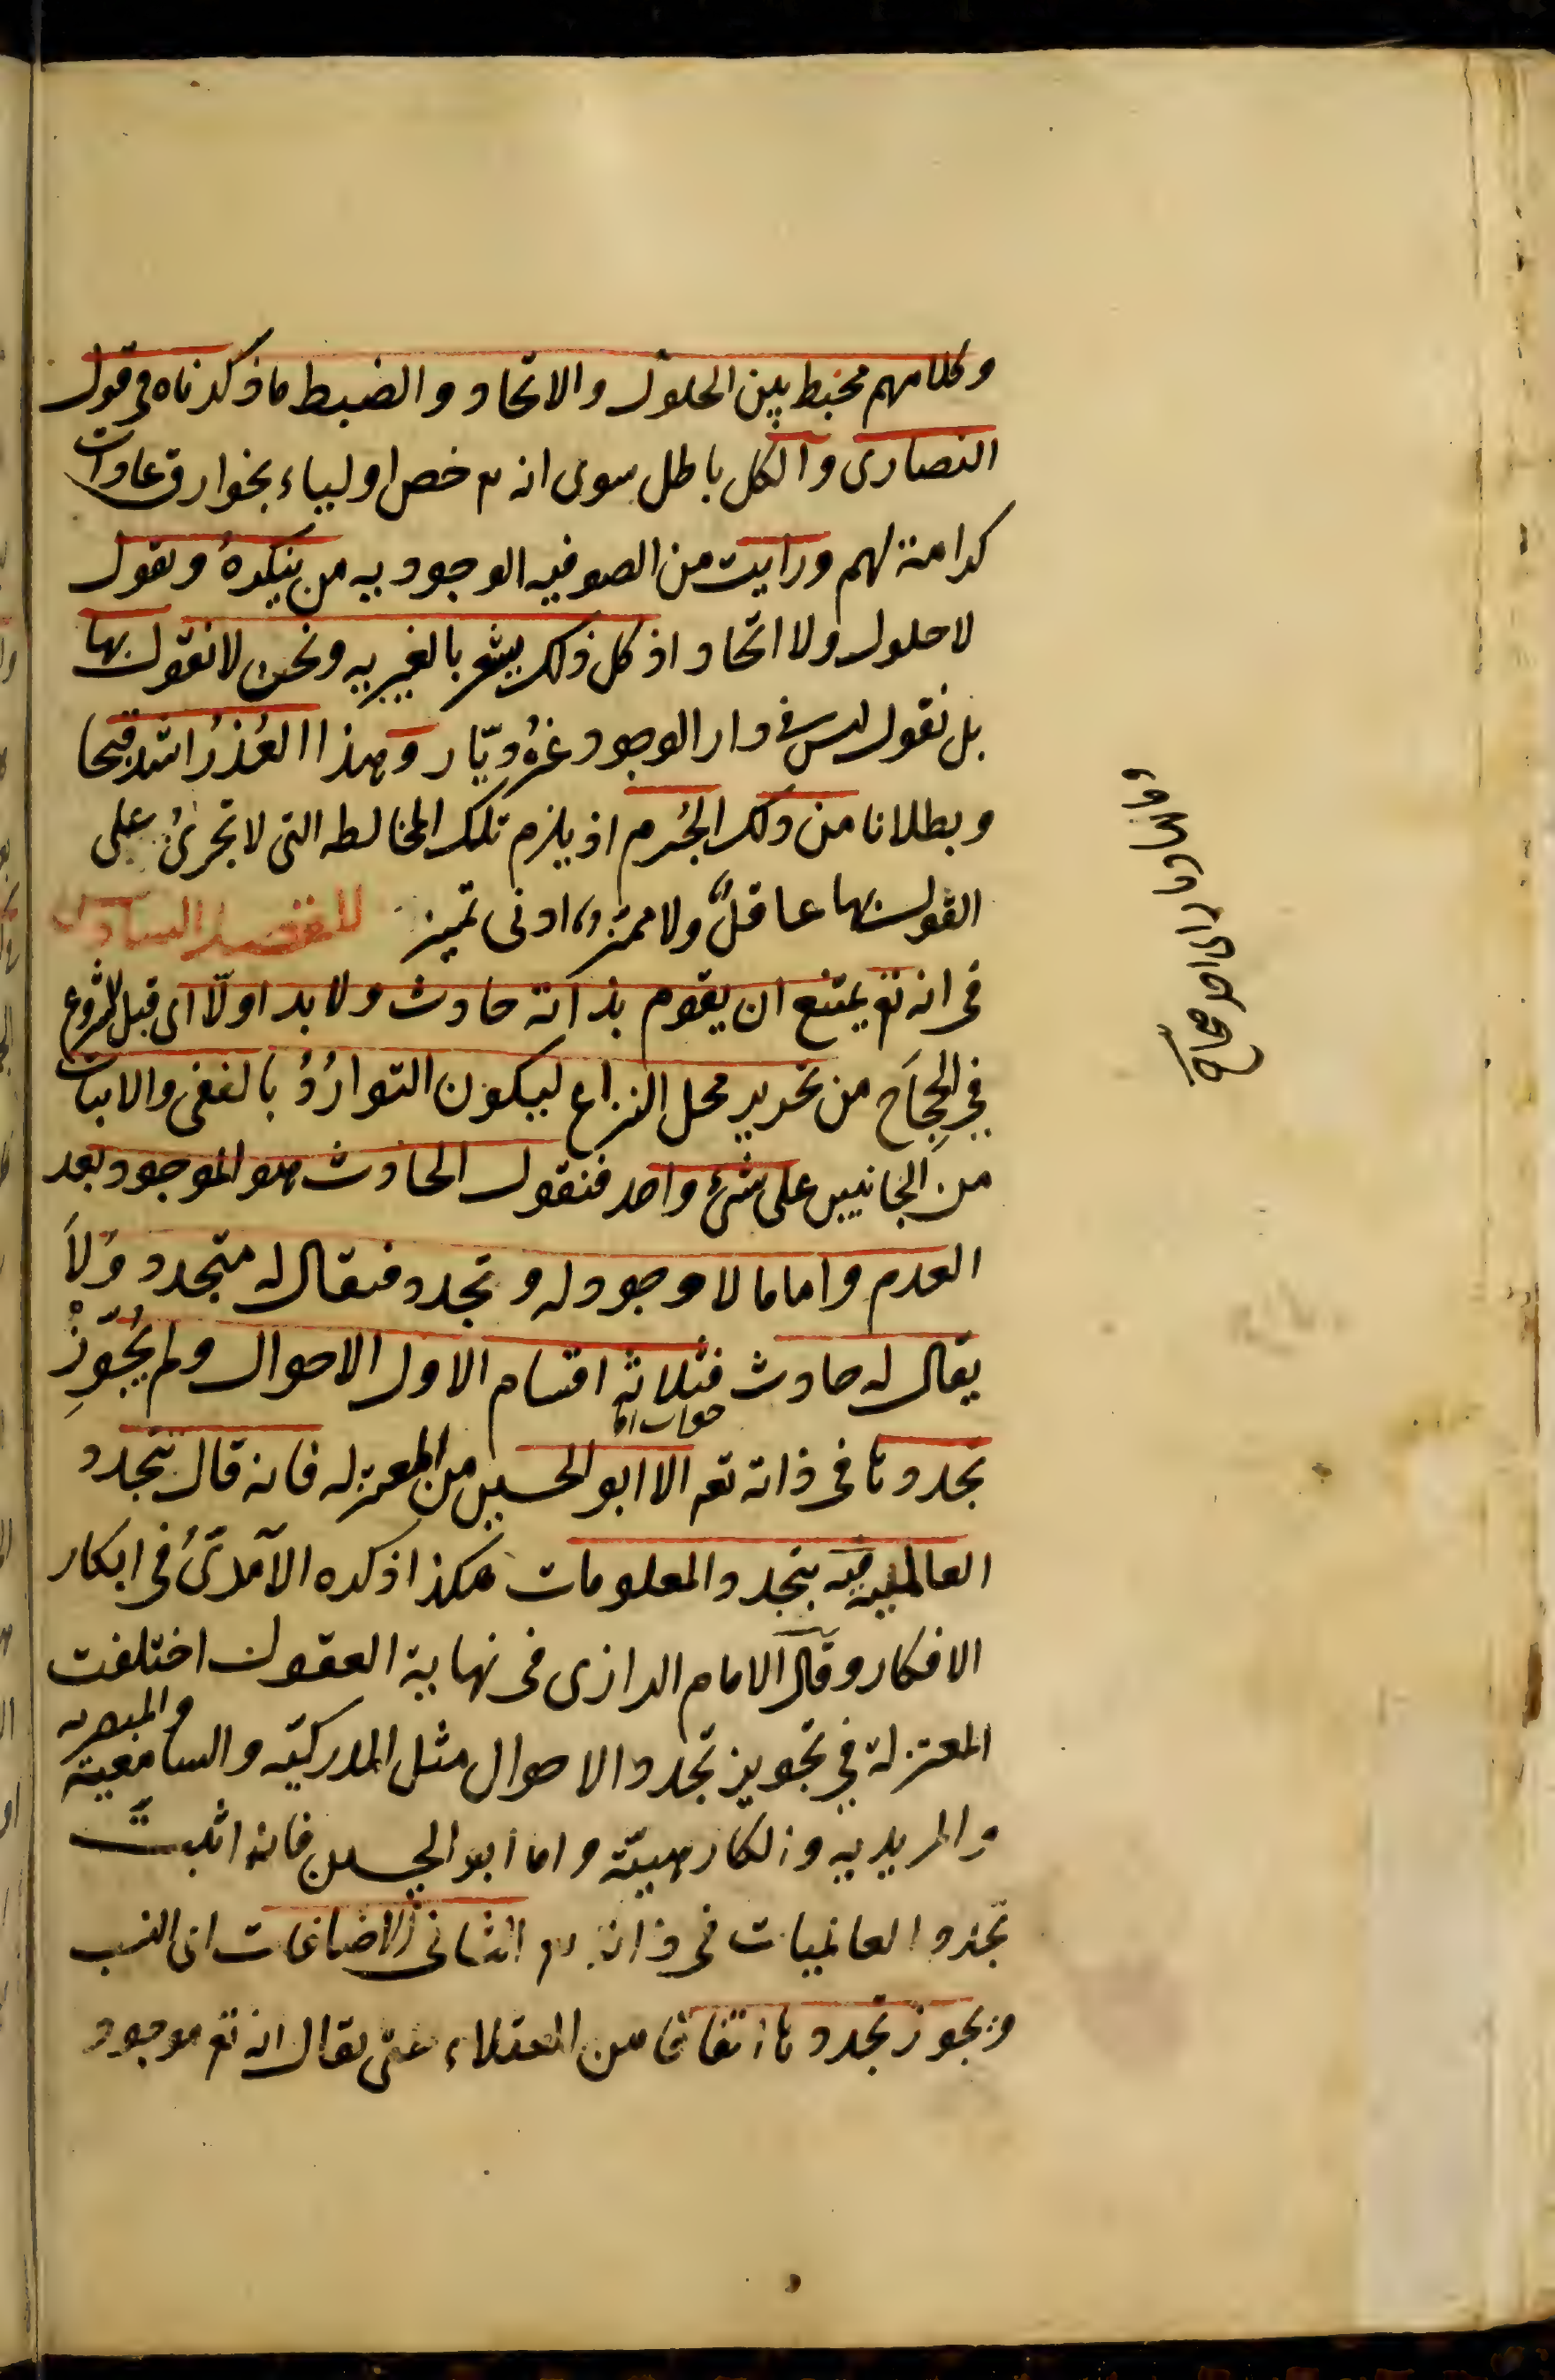 وكلامهم مخبط بين الحلول والاتحاد والضبط ما ذكرناه في قول
النصارى والكل باطل سوى انه تع خص اولياء بخوارق عادات
كرامة لهم ورايت من الصوفيه الوجوديه من ينكرهُ ويقول
لا حلول ولا اتحاد اذ كل ذلك يشعر بالغيريه ونحن لا نقول بها
بل نقول ليس في دار الوجود غيرُه ديّار وهذا العُذرُ اشد قبحا
وبطلانا من ذلك الجُرم اذ يلزم تلك المخالطه التى لا تجرئُ على
القول بها عاقلٌ ولا مميز ادنى تميز
في انه تع يمتنع ان يقوم بذاته حادث ولا بد اولّا اى قبل الشروع
في الحِجَاح من تحرير محل النزاع ليكون التواردُ بالنفى والاثبات
من الجانبين على شئ واحد فنقول الحادث هو الموجود بعد
العدم واما ما لا وجود له وتجدد فيقال له متجدد وَلاَ
يقال له حادث فثلاثه اقسام الاول الاحوال ولم يُجَوِّزْ
تجددها في ذاته تع الا ابو الحسين من المعتزله فانه قال يتجدد
العالميه فيه بتجدد المعلومات هكذا ذكره الآمدىُ في ابكار
الافكار وقال الامام الرازى في نهاية العقول اختلفت
المعتزلة في تجويز تجدد الاحوال مثل المدركيّه والسامعيّة والمبصريه
والمريديه والكارهيّة واما ابو الحسين فانه اثبت
تجدد العالميات في ذاته تع الثانى الاضافات اى النسب
ويجوز تجددها اتفاقا من العقلاء حتى يقال انه تع موجود